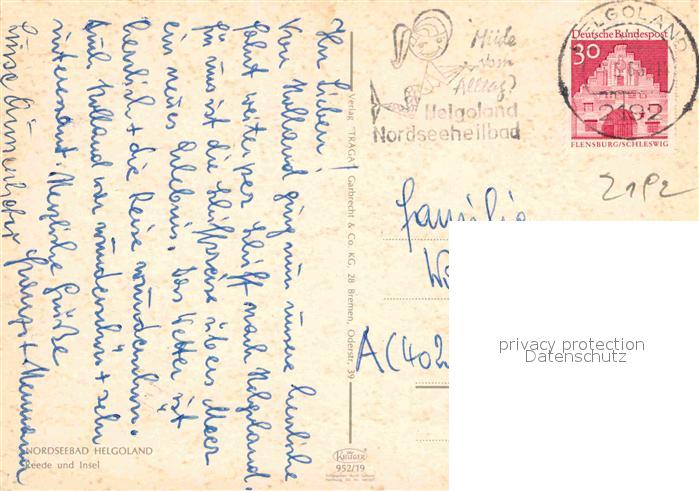 Ihr Lieben!
Von Holland ging nun unsere herrliche
Fahrt weiter per Schiff nach Helgoland.
Für uns ist die Schiffsreise übers Meer
ein neues Erlebnis. Das Wetter ist
herrlich + die Reise wunderschön.
Auch Holland war wunderschön + sehr
interessant. Herzliche Grüße
Franz + Hermann
NORDSEEBAD HELGOLAND
Reede und Insel
Verlag "TRAGA" Garbrecht & Co. KG. 28 Bremen, Oderstr. 39
KRÜGER
952/19
Müde
vom
Alltag?
Helgoland
Nordseeheilbad
HELGOLAND
2192
Deutsche Bundespost
30
FLENSBURG/SCHLESWIG
2192
Familie
A (402
privacy protection
Datenschutz